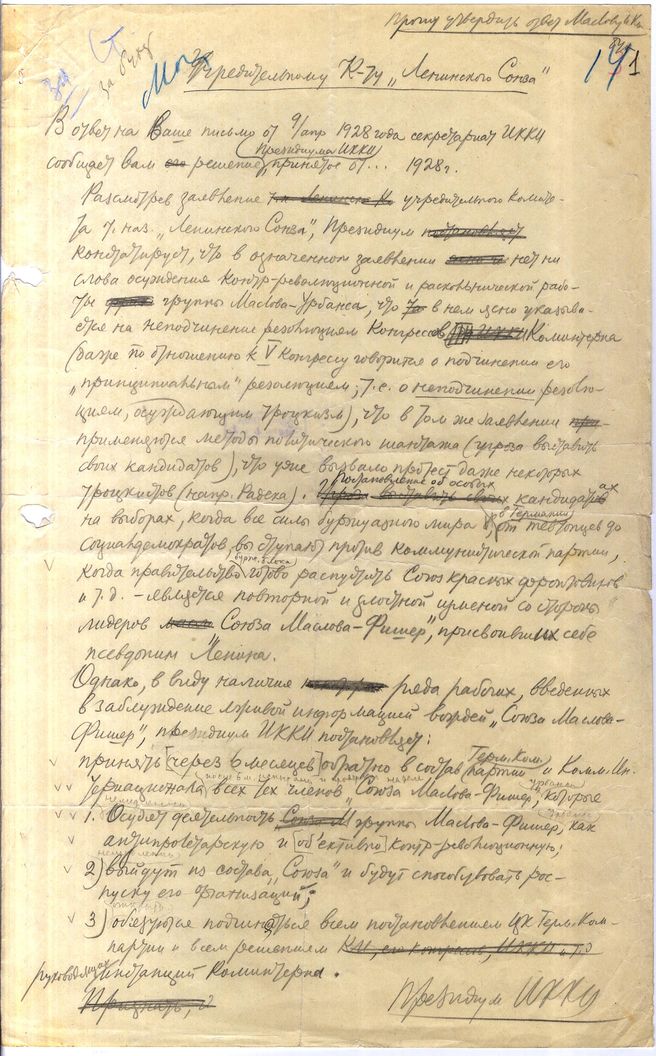 Прошу утвердить ответ Маслову и Ко.
За
Ст.
за Бух
Мол
141
Учредительному К-ту „Ленинского Союза"
В ответ на Ваше письмо от 9/апр 1928 года секретариат ИККИ
Президиума ИККИ
сообщает вам его решение, принятое от... 1928 г.
Рассмотрев заявление учредительного комите-
та т. наз. „Ленинского Союза", Президиум постановляет
констатирует, что в означенном заявлении нет ни
слова осуждения контр-революционной и раскольнической рабо-
ты группы Маслова-Урбанса, что в нем ясно указыва-
ется на неподчинение резолюциям Конгрессов ИККИ Коминтерна
(даже по отношению к V Конгрессу говорится о подчинении его
„принципиальным" резолюциям; т.е. о неподчинении резолю-
циям, осуждающим троцкизм), что в том же заявлении при-
применяются методы политического шантажа (угроза выставить
своих кандидатов), что уже вызвало протест даже некоторых
Постановление об особых
троцкистов (напр. Радека). выставить своих кандидатах
в Германии
на выборах, когда все силы буржуазного мира, от тевтонцев до
социалдемократов, выступают против коммунистической партии,
бурж. блока
когда правительство готово распустить Союз красных фронтовиков
и т.д. – является повторной и злостной изменой со стороны
лидеров „Союза Маслова-Фишер", присвоивших себе
псевдоним Ленина.
Однако, в виду наличия ряда рабочих, введенных
в заблуждение лживой информацией вождей „Союза Маслова-
Фишер", президиум ИККИ постановляет:
Герм. Ком.
принять [через 6 месяцев] обратно в состав партии и Комм. Ин-
тернационала всех тех членов „Союза Маслова-Фишер", которые
1. Осудят деятельность Союза М группы Маслова-Фишер, как
антипролетарскую и [об'ективно] контр-революционную;
2) выйдут из состава „Союза" и будут способствовать рос-
пуску его организаций;
3) обязуются подчиняться всем постановлениям ЦК Герм. Ком-
партии и всем решениям КИ, его конгрессов, ИККИ и т.д
руководящих инстанций Коминтерна.
Признать, и
Президиум ИККИ